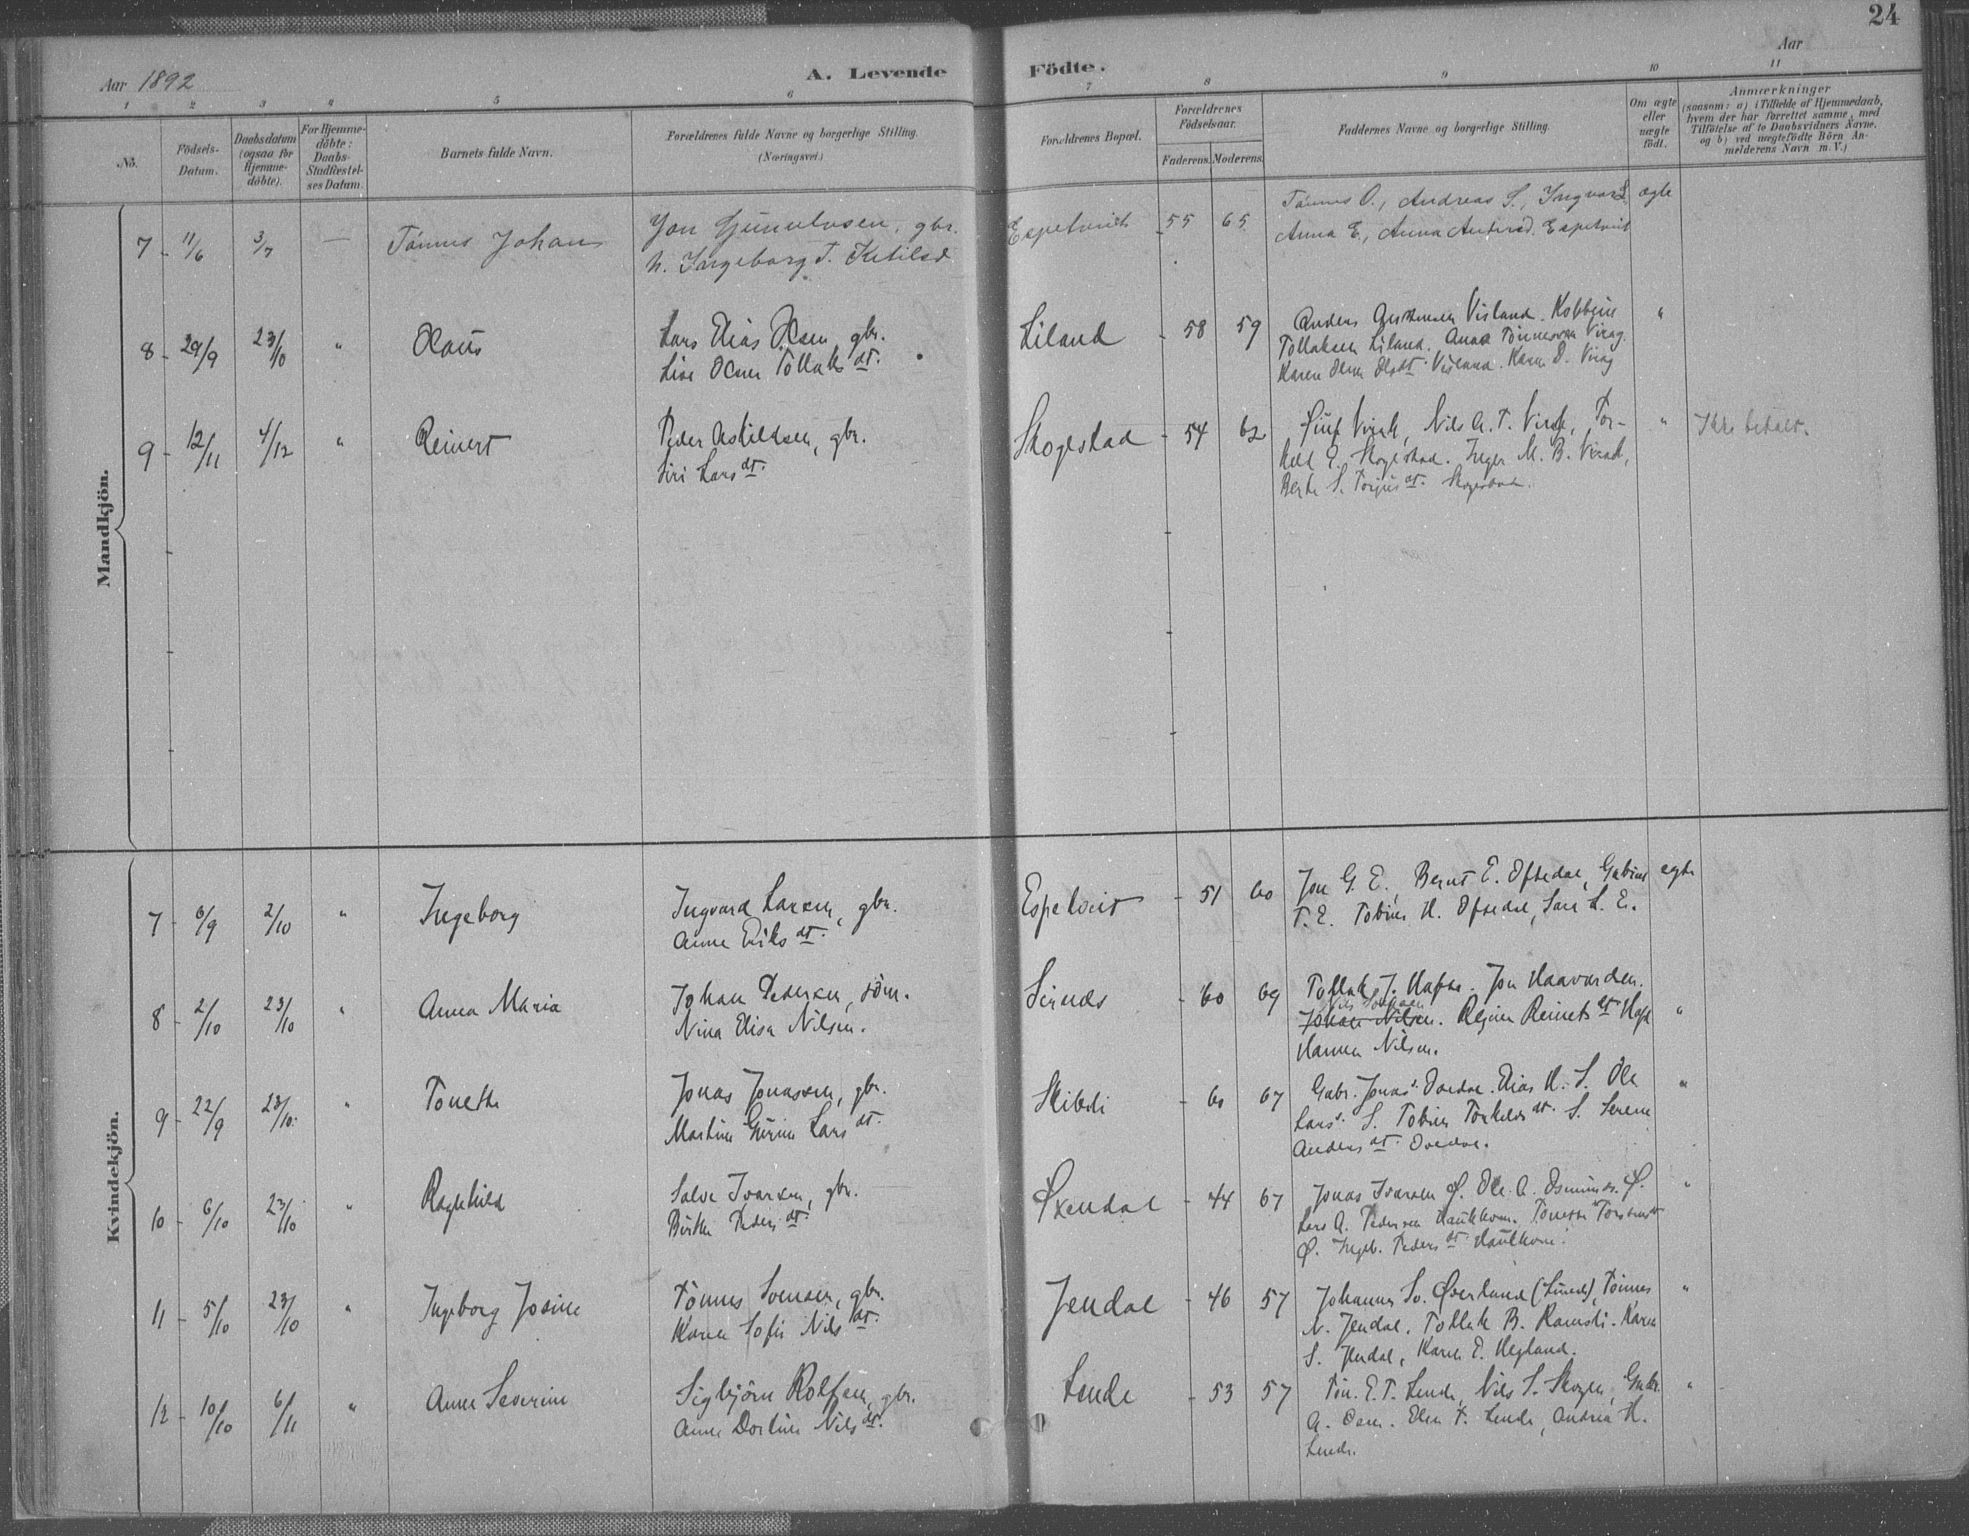 24
Aar 1892
A. Levende Födte.
Aar
1 2 3 4 5 6 7 8 9 10 11
No.
Födsels-Datum.
Daabsdatum (ogsaa for Hjemme-döbte).
For Hjemme-döbte: Daabs-Stadfæstel-ses Datum.
Barnets fulde Navn.
Forældrenes fulde Navne og borgerlige Stilling. (Næringsvei.)
Forældrenes Bopæl.
Forældrenes Födselsaar.
Faderens. Moderens.
Faddernes Navne og borgerlige Stilling.
Om ægte eller uægte födt.
Anmærkninger
(saasom: a) i Tilfælde af Hjemmedaab,
hvem der har forrettet samme, med
Tilföielse af to Daabsvidners Navne.
og b) ved uægtefödte Börn An-
melderens Navn m. V.)
Mandkjön.
7 11/6 3/7 — Tönnes Johan
Jon Gunnulvsen, gbr.
Ingeborg T. Ketilsd
Espetveit 55 65
Tönnes O., Andreas S., Ingvard ægte
Anna E., Anna Espetveit
8 29/9 23/10 " Olaus
Lars Elias Olsen gbr.
Lise Tollaks dt.
Liland 58 59
Anders Visland. Kobbein "
Tollaksen Liland. Anna Tönnesen Virag.
Karen Visland. Karen O. Virag
9 12/11 4/12 " Reinert
Peder Askildsen, gbr.
Siri Lars dt.
Skogestad 54 62
Virak, Nils A. T. Virak, Tor- " Ikke betalt.
kell E. Skogestad. Inger M. B. Virak,
Berte S. Torjus dt. Skogestad.
Kvindekjön.
7 6/9 2/10 " Ingeborg
Ingvard Larsen, gbr.
Anne Eriks dt.
Espetveit 51 60
Jon G. E., Bernt E. Oftedal, Gabriel egte
T. E. Tobine H. Oftedal, L. E.
8 2/10 23/10 " Anna Maria
Johan Pedersen,
Nina Elisa Nilsen.
Sirnes 60 69
Tollak J. Hafsø. Jon Haavardsen.
Nils
Johan Nilsen. Regine Reinerts dt "
Hanna Nilsen.
9 22/9 23/10 " Tonette
Jonas Jonassen, gbr.
Martine Gurine Lars dt.
Skibeli 60 67
Gabr. Jonas. Elias H. S. Ole "
Lars. S. Tobine Torkels dt. S. Serene
Anders dt.
10 6/10 23/10 " Ragnhild
Salve Ivarsen, gbr.
Birthe Peders dt.
Øxendal 44 67
Jonas Ivarsen Ø. Ole A. Osmunds. Ø. "
Lars A. Pedersen Haukkom. Tonette
Ø. Ingeb. Peders dt. Haukkom.
11 5/10 23/10 " Ingeborg Josine
Tönnes Svensen, gbr.
Karen Sofie Nils dt.
Jendal 46 57
Johannes Sv. Överland (Lunde), Tönnes "
N. Jendal, Tollak B. Ramsli. Karen
S. Jendal, Karen E. Hegland.
12 10/10 6/11 " Anne Severine
Sigbjörn Rolfsen, gbr.
Anne Dortine Nils dt.
Lende 53 57
Tön. E. T. Lende, Nils S. Skogen, Gabr. "
A. Elen T. Lende, Andrea H.
Lende.